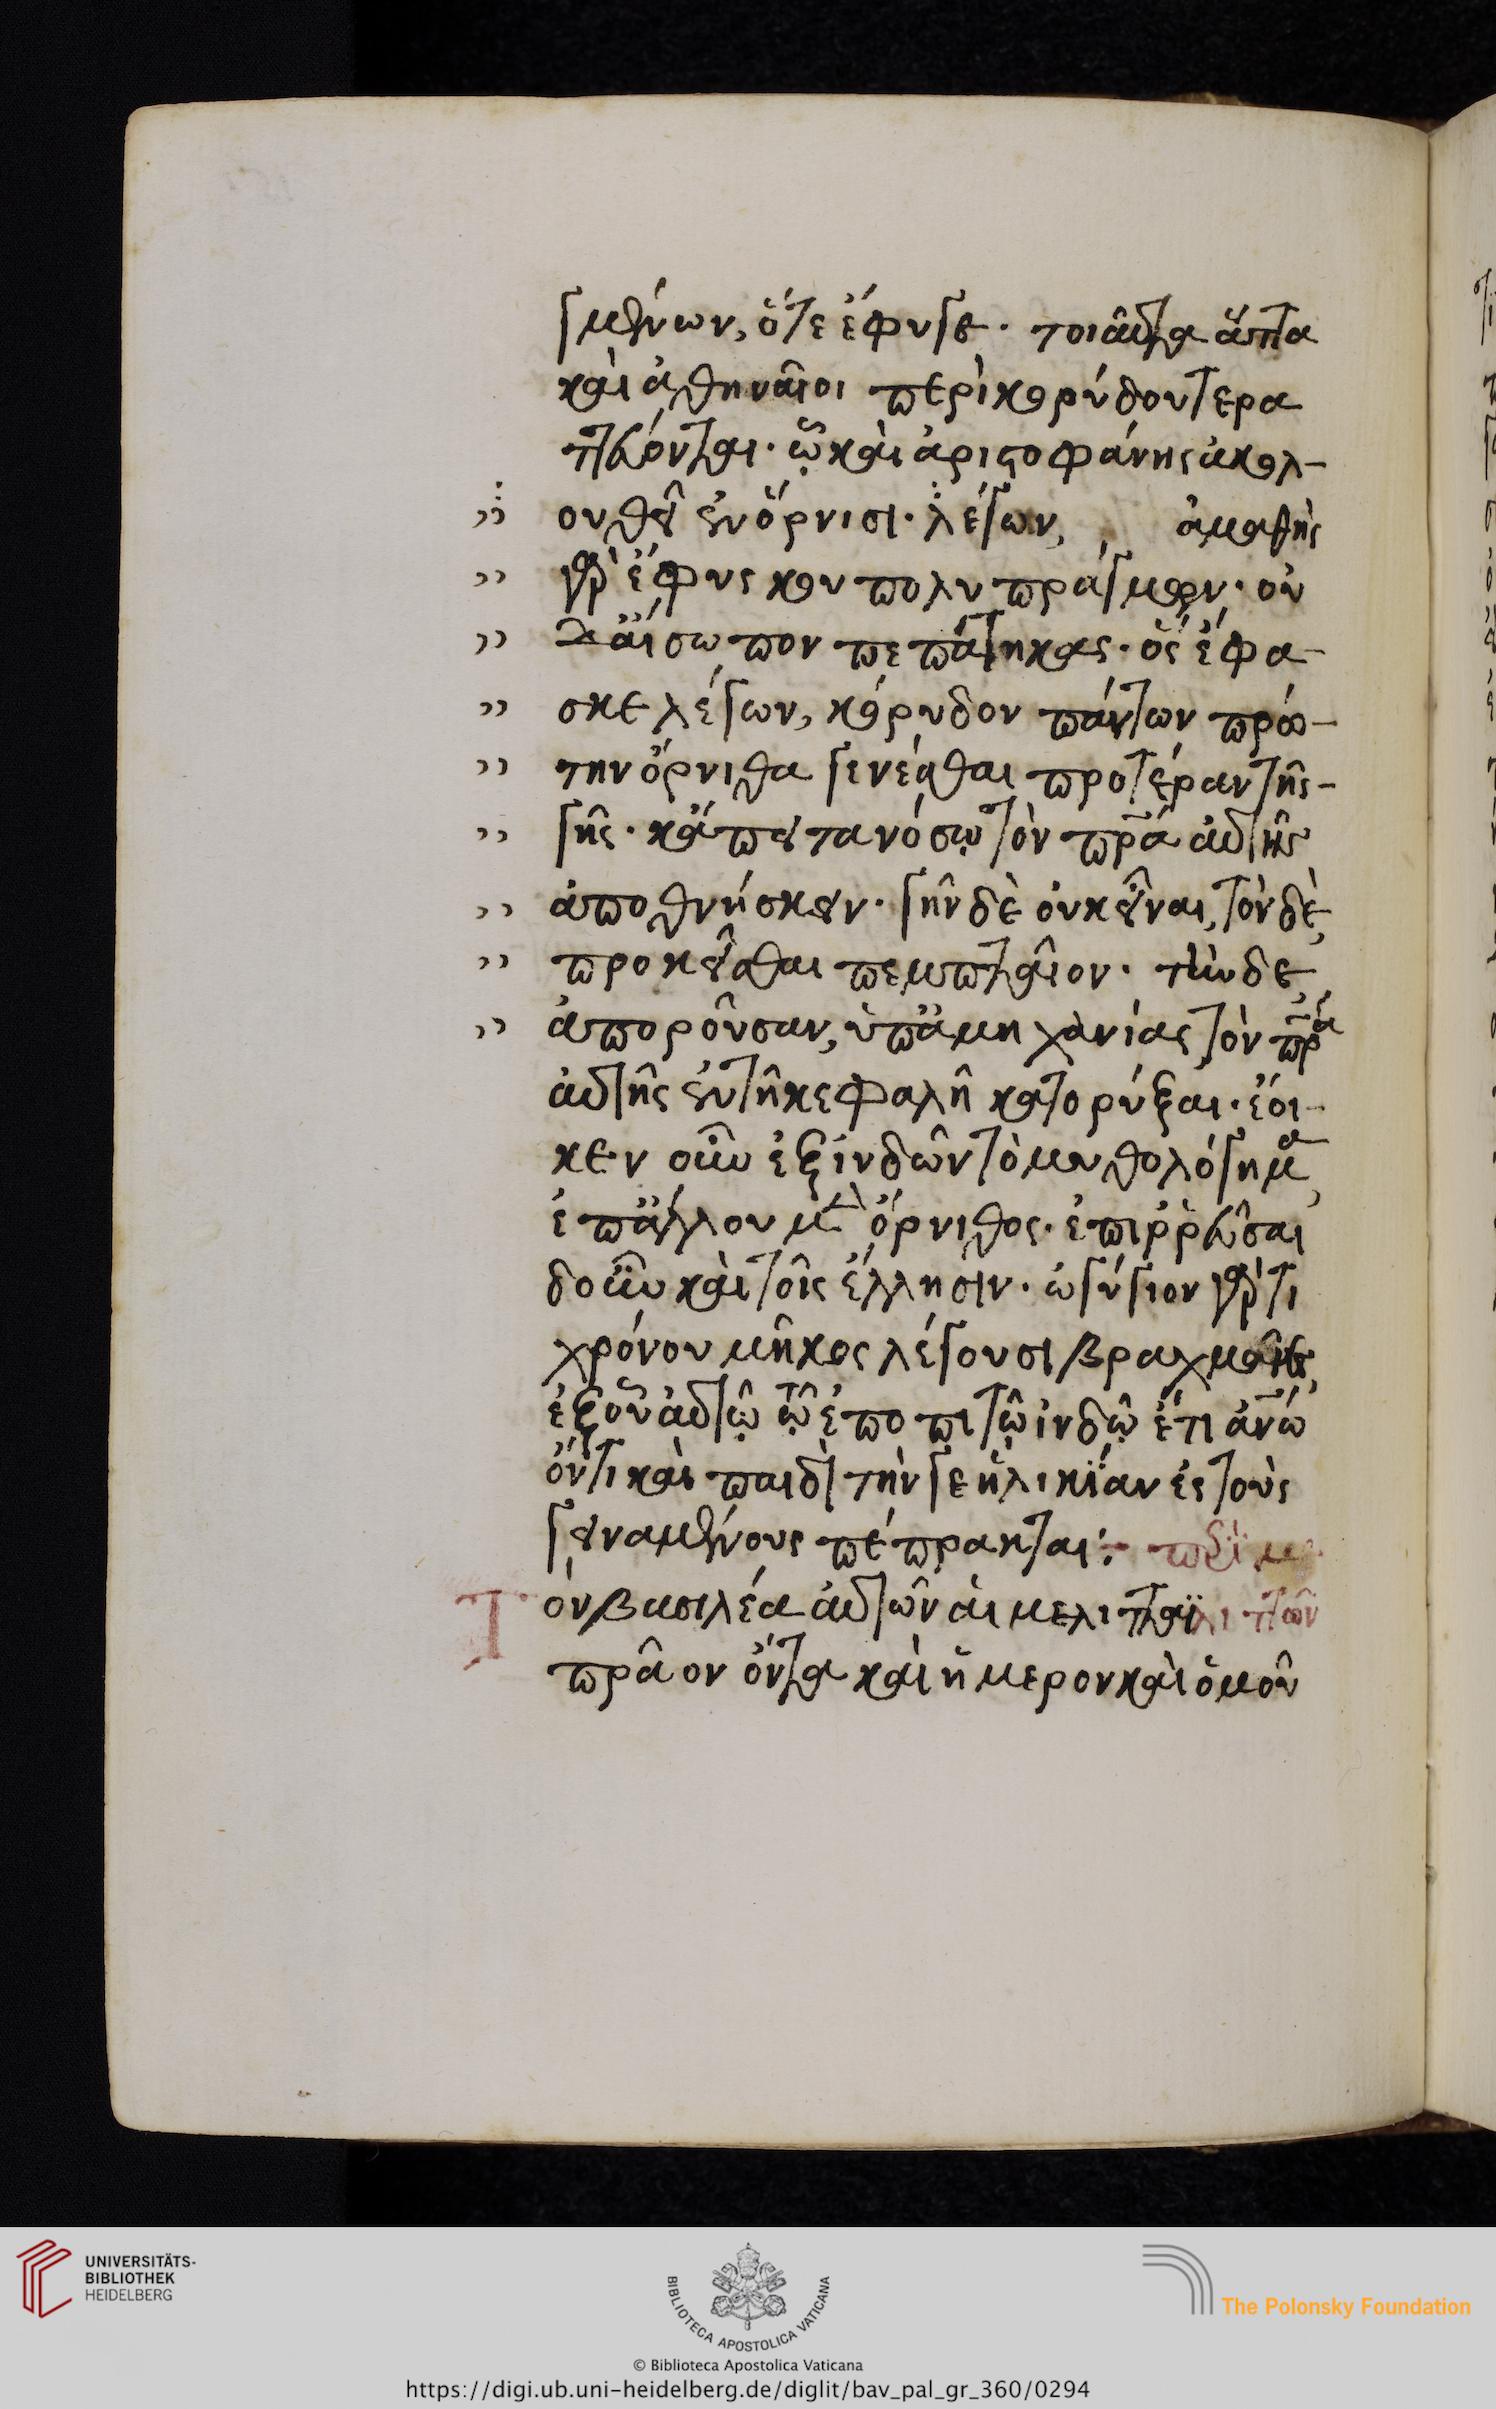 γαμένων, ὅτε ἔφυγε. τοιαῦτα ἄττα
καὶ ἀθηναῖοι περὶ κορύδου τερα
τεύονται. ᾧ καὶ ἀριστοφάνης ἀκολ-
ουθεῖ ἐν ὄρνισι. λέγων, ἀμαθὴς
γὰρ ἔφυς κου πολυπράγμων. οὐ
δ' αἴσωπον πεπάτηκας. ὃς ἔφα-
σκε λέγων, κόρυδον πάντων πρώ-
την ὄρνιθα γενέσθαι προτέραν τῆς
γῆς. κἄπειτα νόσῳ τὸν πρα αὐτῆς
ἀποθνήσκειν. γῆν δὲ οὐκ εἶναι, τὸν δὲ
προκεῖσθαι πεμπταῖον. τὴν δε
ἀποροῦσαν, ὑπ' ἀμηχανίας τὸν πρα
αὐτῆς ἐν τῆ κεφαλῆ κατορύξαι. ἔοι-
κεν οὖν ἐξ ἰνδῶν τὸ μυθολόγημα
ἐπ' ἄλλου μὲν ὄρνιθος. ἐπιρρεῦσαι
δ' οὖν καὶ τοῖς ἕλλησιν. ὠγύγιον γάρ τι
χρόνου μῆκος λέγουσι βραχμᾶνες
ἐξ οὗ αὐτῷ τῷ ἔποπι τῷ ἰνδῷ ἔτι ἀνω
ὄντι καὶ παιδὶ τήν γε ἡλικίαν ἐς τοὺς
γειναμένους πέπρακται:
Τὸν βασιλέα αὐτῶν αἱ μέλιτται
πρᾶον ὄντα καὶ ἥμερον καὶ ὁμοῦ
UNIVERSITÄTS-
BIBLIOTHEK
HEIDELBERG
BIBLIOTECA APOSTOLICA VATICANA
The Polonsky Foundation
© Biblioteca Apostolica Vaticana
https://digi.ub.uni-heidelberg.de/diglit/bav_pal_gr_360/0294